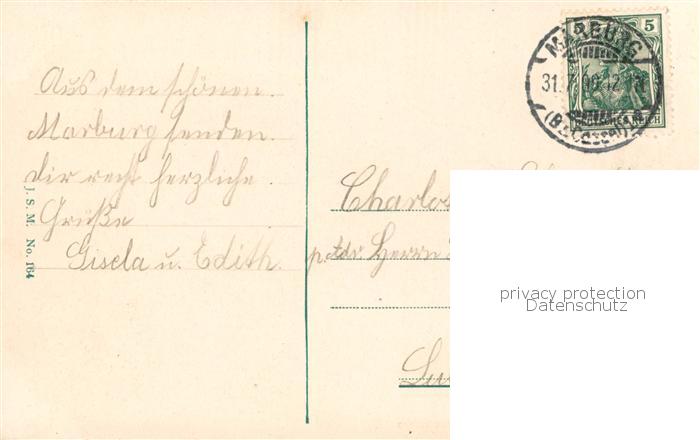 Aus dem schönen
Marburg senden
dir recht herzliche
Grüße
Gisela u. Edith.
J. S. M. No. 164
5 5
MARBURG
31.
DEUTSCHES REICH
Charlo
Herrn
privacy protection
Datenschutz